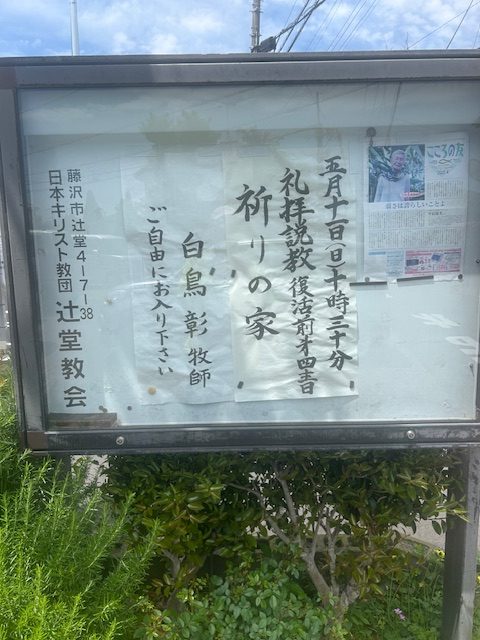 こころの友
五月十一日(日)十時三十分
礼拝説教 復活前第四主日
祈りの家
白鳥 彰 牧師
ご自由にお入り下さい
藤沢市辻堂4-7-38
日本キリスト教団 辻堂教会